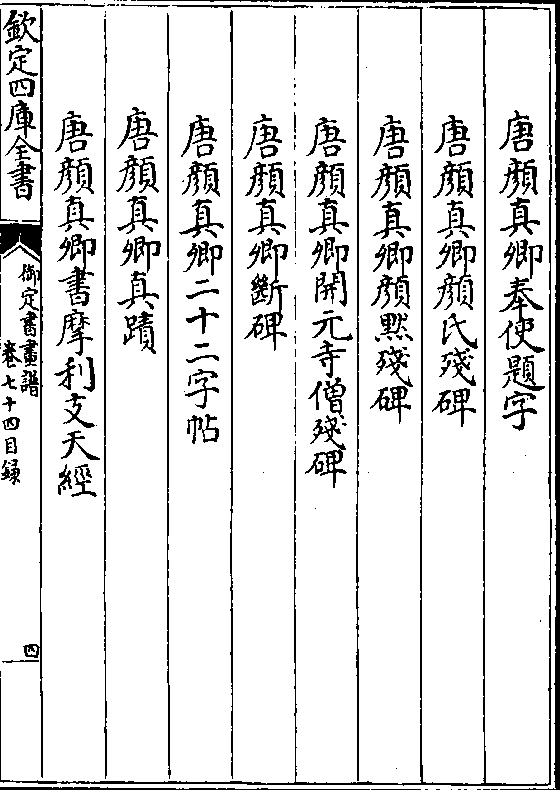 唐顔真卿奉使題字
唐顔真卿顔氏殘碑
唐顔真卿顔黙殘碑
唐顔真卿開元寺僧殘碑
唐顔真卿斷碑
唐顔真卿二十二字帖
唐顔真卿真蹟
唐顔真卿書摩利支天經
欽定四庫全書
御定書畫譜
卷七十四目録
四